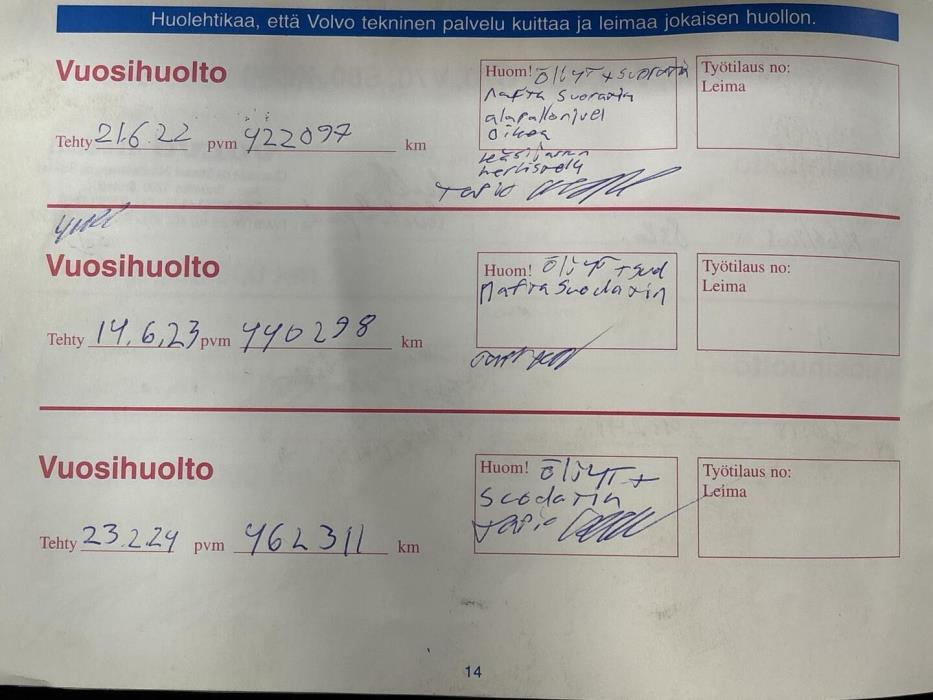 Huolehtikaa, että Volvo tekninen palvelu kuittaa ja leimaa jokaisen huollon.
Vuosihuolto
Tehty 21.6.22 pvm 422097 km
Huom! ÖljyT + suodatin
nafta suodatin
alapallonivel
oikea
käsijarrun
herkistely
Tapio
Työtilaus no:
Leima
Vuosihuolto
Tehty 14.6.23 pvm 440298 km
Huom! ÖljyT + suod
nafta suodatin
Työtilaus no:
Leima
Vuosihuolto
Tehty 23.2.24 pvm 462311 km
Huom! ÖljyT +
suodatin
Tapio
Työtilaus no:
Leima
14